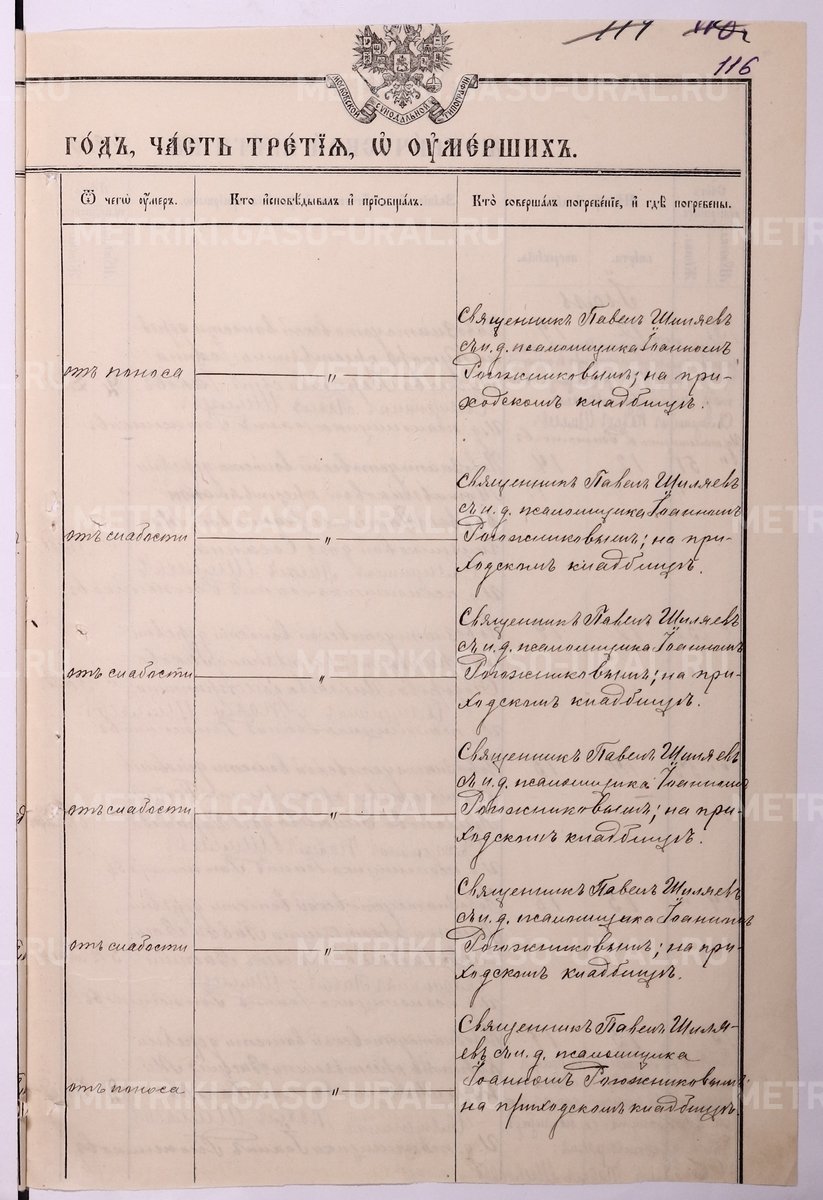 114 110
116
МОСКОВСКОЙ СѴНОДАЛЬНОЙ ТИПОГРАФІИ
ГО́ДЪ, ЧА́СТЬ ТРЕ́ТІѦ, Ѡ҆ ОУ҆МЕ́РШИХЪ.
Ѿ чегѡ̀ ᲂу҆́меръ.
Кто̀ и҆сповѣ́дывалъ и҆ прїѻбща́лъ.
Кто̀ соверша́лъ погребе́нїе, и҆ гдѣ̀ погребены̀.
отъ поноса
"
Священникъ Павелъ Шиляевъ
съ и. д. псаломщика Іоанномъ
Рогожниковымъ; на при-
ходскомъ кладбищѣ.
отъ слабости
"
Священникъ Павелъ Шиляевъ
съ и. д. псаломщика Іоанномъ
Рогожниковымъ; на при-
ходскомъ кладбищѣ.
отъ слабости
"
Священникъ Павелъ Шиляевъ
съ и. д. псаломщика Іоанномъ
Рогожниковымъ; на при-
ходскомъ кладбищѣ.
отъ слабости
"
Священникъ Павелъ Шиляевъ
съ и. д. псаломщика Іоанномъ
Рогожниковымъ; на при-
ходскомъ кладбищѣ.
отъ слабости
"
Священникъ Павелъ Шиляевъ
съ и. д. псаломщика Іоанномъ
Рогожниковымъ; на при-
ходскомъ кладбищѣ.
отъ поноса
"
Священникъ Павелъ Шиля-
евъ съ и. д. псаломщика
Іоанномъ Рогожниковымъ
на приходскомъ кладбищѣ.
METRIKI.GASO-URAL.RU